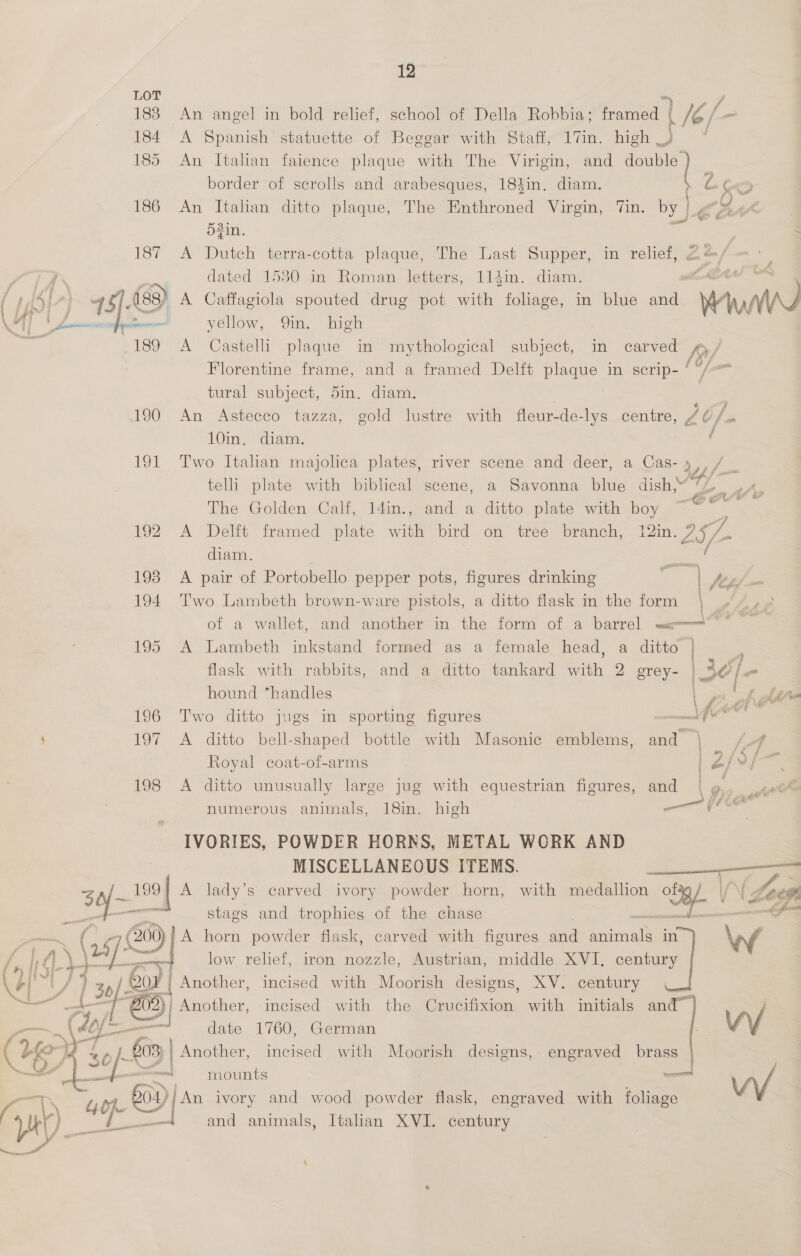 12
LOT
183 An angel in bold relief, school of Della Robbia; framed 16/-
184 A Spanish statuette of Beggar with Staff, 17in. high
185 An Italian faience plaque with The Virigin, and double
border of scrolls and arabesques, 18½in. diam.
186 An Italian ditto plaque, The Enthroned Virgin, 7in. by
5¾in.
187 A Dutch terra-cotta plaque, The Last Supper, in relief, 22/-
dated 1530 in Roman letters, 11½in. diam.
45/- 188 A Caffagiola spouted drug pot with foliage, in blue and
yellow, 9in. high
189 A Castelli plaque in mythological subject, in carved
Florentine frame, and a framed Delft plaque in scrip-
tural subject, 5in. diam.
190 An Astecco tazza, gold lustre with fleur-de-lys centre,
10in. diam.
191 Two Italian majolica plates, river scene and deer, a Cas-
telli plate with biblical scene, a Savonna blue dish,
The Golden Calf, 14in., and a ditto plate with boy
192 A Delft framed plate with bird on tree branch, 12in. 25/-
diam.
193 A pair of Portobello pepper pots, figures drinking
194 Two Lambeth brown-ware pistols, a ditto flask in the form
of a wallet, and another in the form of a barrel
195 A Lambeth inkstand formed as a female head, a ditto
flask with rabbits, and a ditto tankard with 2 grey- 30/-
hound *handles
196 Two ditto jugs in sporting figures
197 A ditto bell-shaped bottle with Masonic emblems, and
Royal coat-of-arms 2/5/-
198 A ditto unusually large jug with equestrian figures, and
numerous animals, 18in. high
IVORIES, POWDER HORNS, METAL WORK AND
MISCELLANEOUS ITEMS.
30/- 199 A lady's carved ivory powder horn, with medallion of
stags and trophies of the chase
25/- 200 A horn powder flask, carved with figures and animals in W
low relief, iron nozzle, Austrian, middle XVI. century
30/- 201 Another, incised with Moorish designs, XV. century
202 Another, incised with the Crucifixion with initials and
20/- date 1760, German W
30/- 203 Another, incised with Moorish designs, engraved brass
mounts
40/- 204 An ivory and wood powder flask, engraved with foliage W
and animals, Italian XVI. century